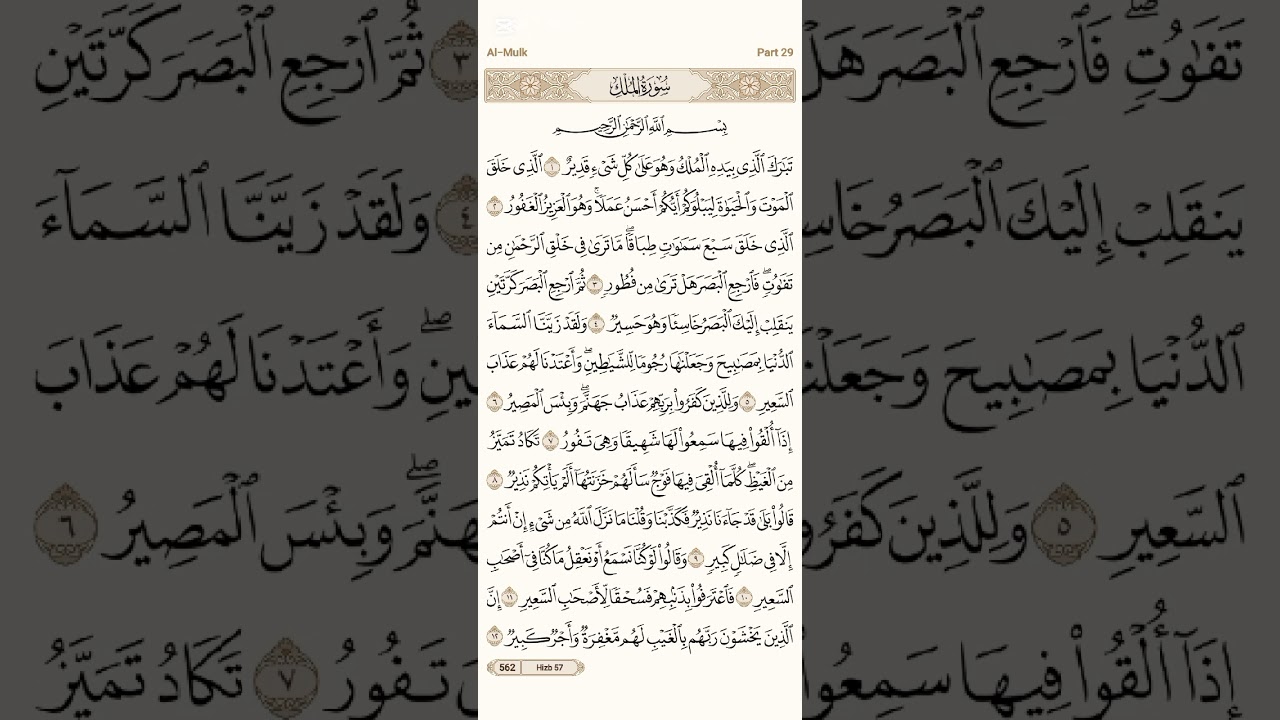 Al-Mulk
Part 29
سُورَةُ المُلْكِ
بِسْمِ ٱللَّهِ ٱلرَّحْمَٰنِ ٱلرَّحِيمِ
تَبَٰرَكَ ٱلَّذِى بِيَدِهِ ٱلْمُلْكُ وَهُوَ عَلَىٰ كُلِّ شَىْءٍ قَدِيرٌ ١ ٱلَّذِى خَلَقَ
ٱلْمَوْتَ وَٱلْحَيَوٰةَ لِيَبْلُوَكُمْ أَيُّكُمْ أَحْسَنُ عَمَلًا ۚ وَهُوَ ٱلْعَزِيزُ ٱلْغَفُورُ ٢
ٱلَّذِى خَلَقَ سَبْعَ سَمَٰوَٰتٍ طِبَاقًا ۖ مَّا تَرَىٰ فِى خَلْقِ ٱلرَّحْمَٰنِ مِن
تَفَٰوُتٍ ۖ فَٱرْجِعِ ٱلْبَصَرَ هَلْ تَرَىٰ مِن فُطُورٍ ٣ ثُمَّ ٱرْجِعِ ٱلْبَصَرَ كَرَّتَيْنِ
يَنقَلِبْ إِلَيْكَ ٱلْبَصَرُ خَاسِئًا وَهُوَ حَسِيرٌ ٤ وَلَقَدْ زَيَّنَّا ٱلسَّمَآءَ
ٱلدُّنْيَا بِمَصَٰبِيحَ وَجَعَلْنَٰهَا رُجُومًا لِّلشَّيَٰطِينِ ۖ وَأَعْتَدْنَا لَهُمْ عَذَابَ
ٱلسَّعِيرِ ٥ وَلِلَّذِينَ كَفَرُوا۟ بِرَبِّهِمْ عَذَابُ جَهَنَّمَ ۖ وَبِئْسَ ٱلْمَصِيرُ ٦
إِذَآ أُلْقُوا۟ فِيهَا سَمِعُوا۟ لَهَا شَهِيقًا وَهِىَ تَفُورُ ٧ تَكَادُ تَمَيَّزُ
مِنَ ٱلْغَيْظِ ۖ كُلَّمَآ أُلْقِىَ فِيهَا فَوْجٌ سَأَلَهُمْ خَزَنَتُهَآ أَلَمْ يَأْتِكُمْ نَذِيرٌ ٨
قَالُوا۟ بَلَىٰ قَدْ جَآءَنَا نَذِيرٌ فَكَذَّبْنَا وَقُلْنَا مَا نَزَّلَ ٱللَّهُ مِن شَىْءٍ إِنْ أَنتُمْ
إِلَّا فِى ضَلَٰلٍ كَبِيرٍ ٩ وَقَالُوا۟ لَوْ كُنَّا نَسْمَعُ أَوْ نَعْقِلُ مَا كُنَّا فِىٓ أَصْحَٰبِ
ٱلسَّعِيرِ ١٠ فَٱعْتَرَفُوا۟ بِذَنۢبِهِمْ فَسُحْقًا لِّأَصْحَٰبِ ٱلسَّعِيرِ ١١ إِنَّ
ٱلَّذِينَ يَخْشَوْنَ رَبَّهُم بِٱلْغَيْبِ لَهُم مَّغْفِرَةٌ وَأَجْرٌ كَبِيرٌ ١٢
562
Hizb 57